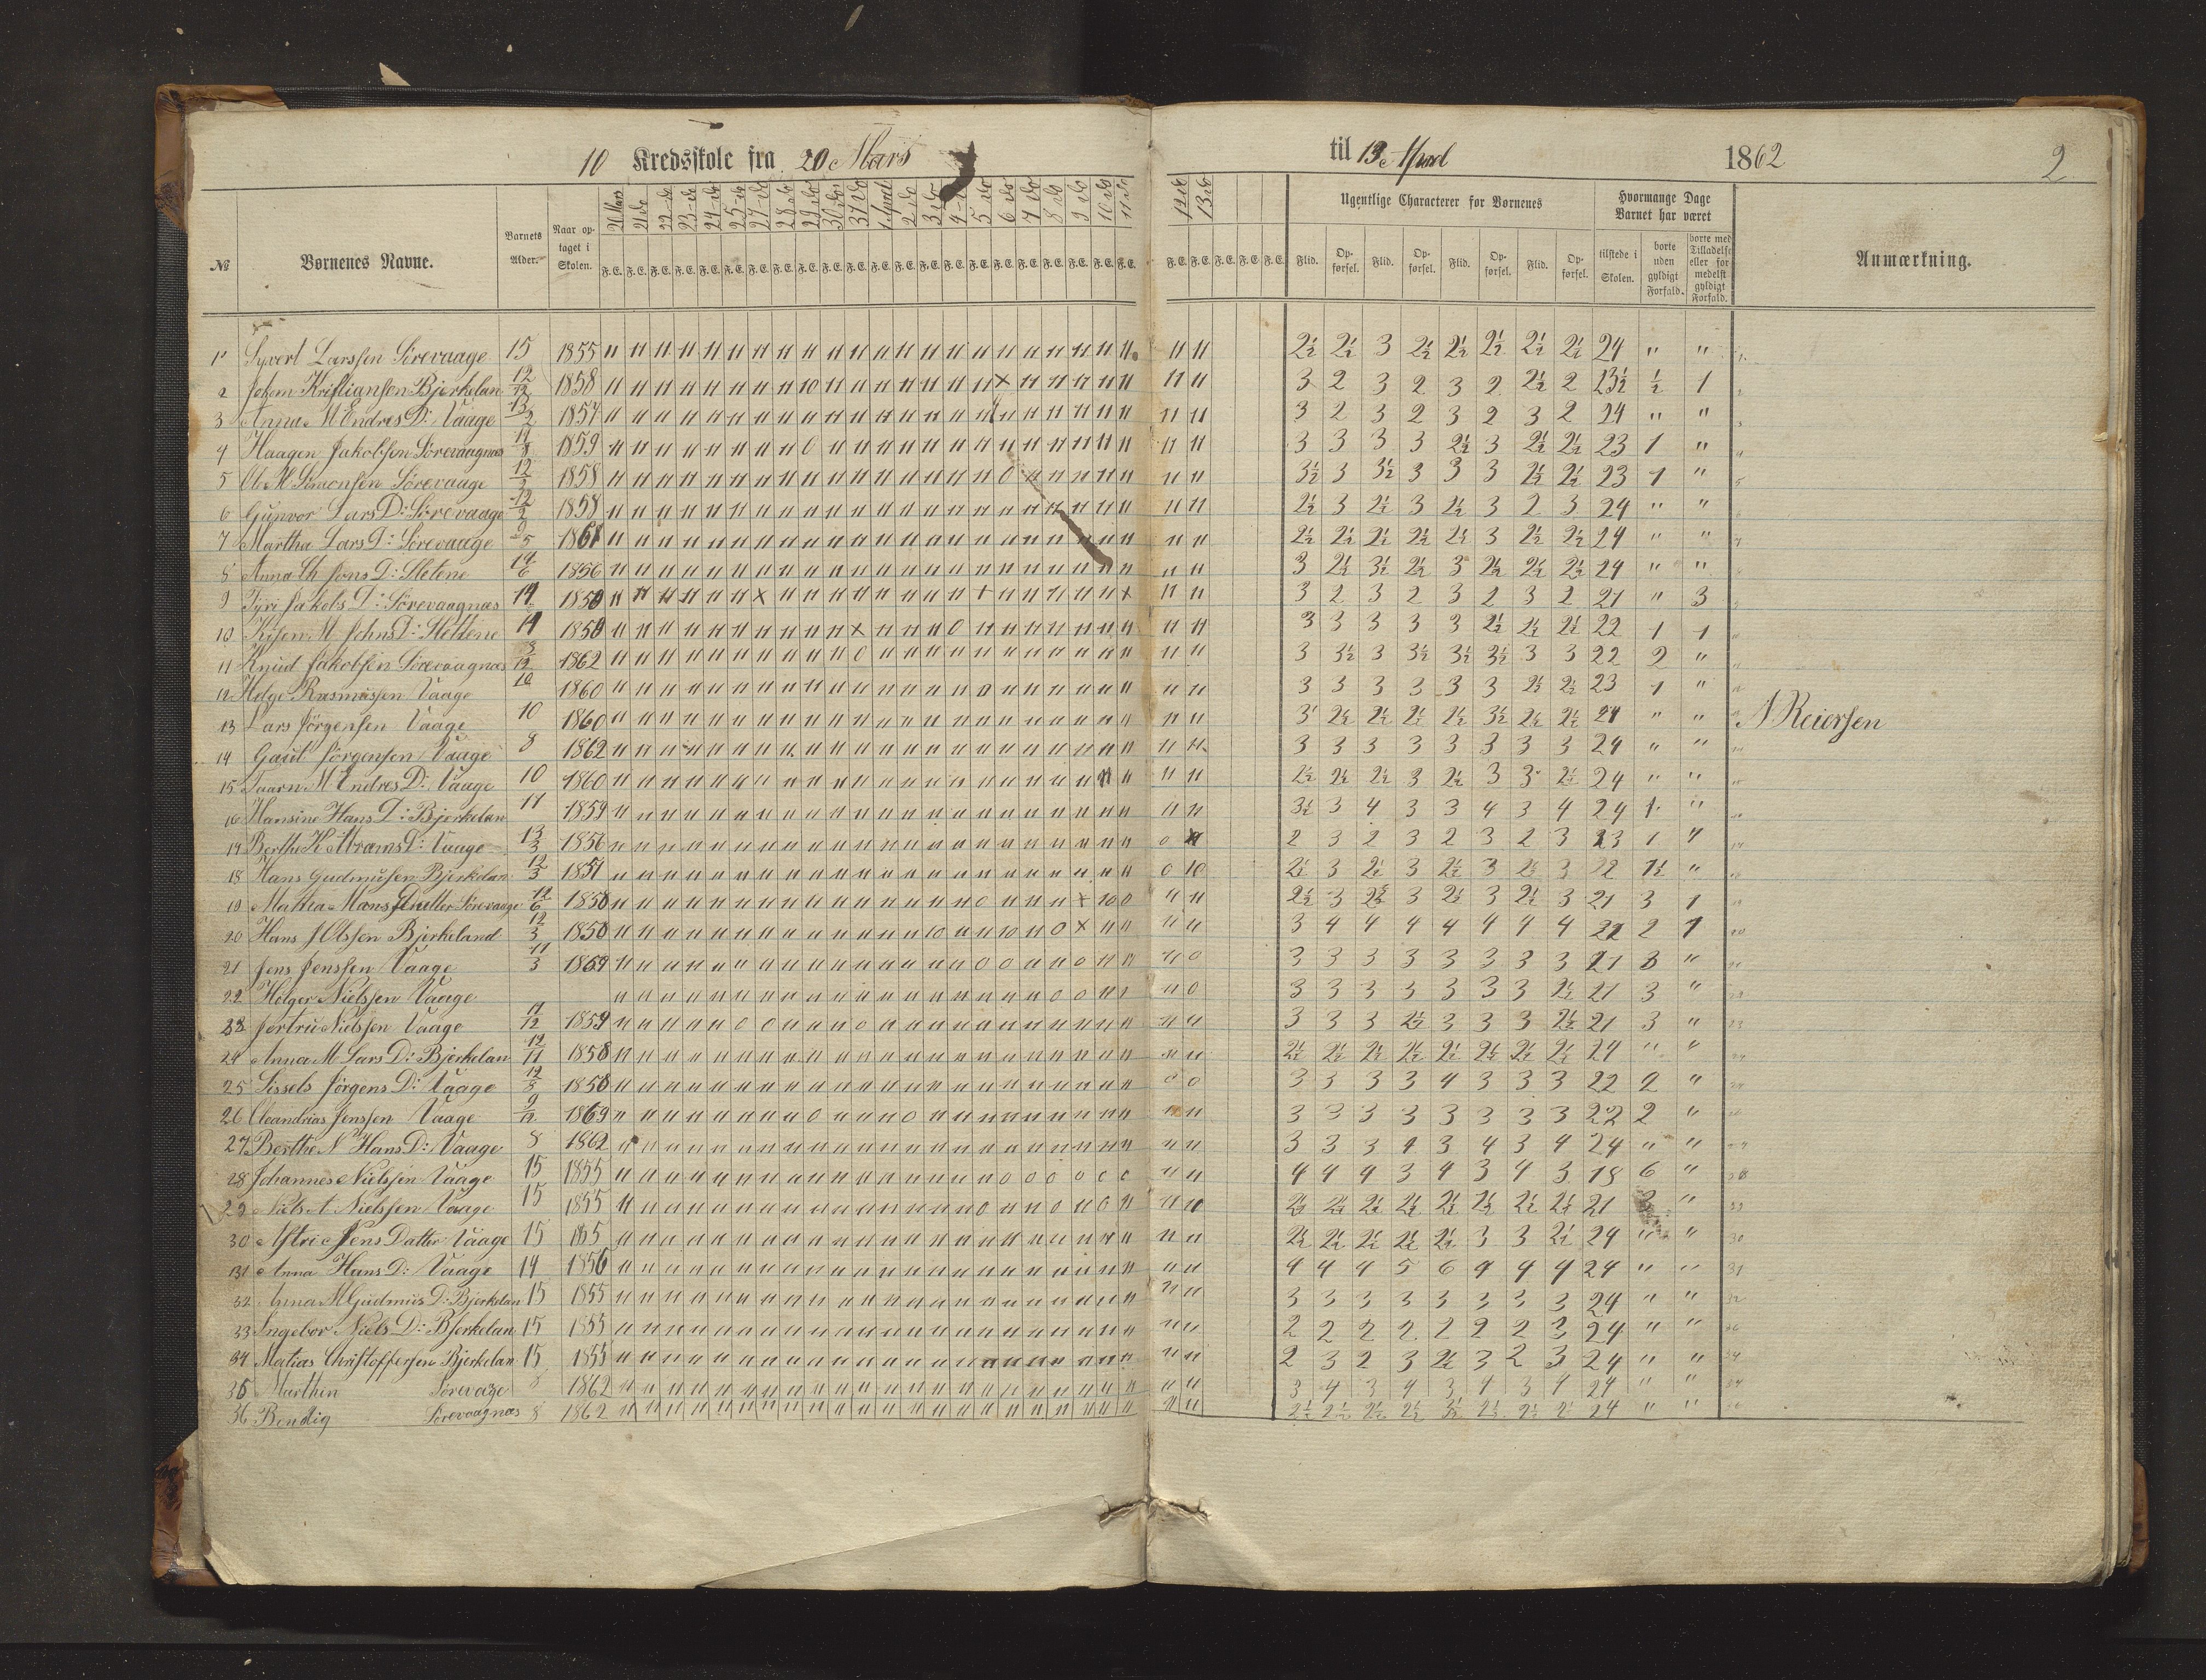 10 Kredsskole fra 20 Mars til 13 April 1862 2
№ Børnenes Navne. Barnets Alder. Naar optaget i Skolen. Ugentlige Characterer for Børnenes Hvormange Dage Barnet har været Anmærkning.
20 Mars 21 do 22 do 23 do 24 do 25 do 27 do 28 do 29 do 30 do 31 do 1 April 2 do 3 do 4 do 5 do 6 do 7 do 8 do 9 do 10 do 11 do 12 do 13 do
Flid. Opførsel. Flid. Opførsel. Flid. Opførsel. Flid. Opførsel. tilstede i Skolen. borte uden gyldigt Forfald. borte med Tilladelse eller formedelst gyldigt Forfald.
1 Syvert Larssen Sörevaage 15 1855 2½ 2½ 3 2½ 2½ 2½ 2½ 2½ 24 " "
2 Joham Kristiansen Bjerkelan 12/12 1858 3 2 3 2 3 2 2½ 2 23½ ½ 1
3 Anna M Endres D: Vaage 13/2 1857 3 2 3 2 3 2 3 2 24 " "
4 Haagen Jakobsen Sörevaagnæs 11/8 1859 3 3 3 3 2½ 3 2½ 2½ 23 1 "
5 Ole M Simonsen Sörevaage 12/3 1858 3½ 3 3½ 3 3 3 2½ 2½ 23 1 "
6 Gunvor Lars D: Sörevaage 12/2 1858 2½ 3 2½ 3 2½ 3 2 3 24 " "
7 Martha Lars D: Sörevaage 9/5 1861 2½ 2½ 2½ 2½ 2½ 3 2½ 2½ 24 " "
8 Anna Ch Jons D: Sletene 14/6 1856 3 2½ 3½ 2½ 3 2½ 2½ 2½ 24 " "
9 Jyri Jakobs D: Sörevaagnæs 14 1858 3 2 3 2 3 2 3 2 21 " 3
10 M Johns D: Slettene 14 1858 3 3 3 3 3 2½ 2½ 2½ 22 1 1
11 Knud Jakobsen Sörevaagnæs 8/12 1862 3 3½ 3 3½ 3½ 3½ 3 3 22 2 "
12 Helge Rasmussen Vaage 10 1860 3 3 3 3 3 3 2½ 2½ 23 1 "
13 Lars Jörgensen Vaage 10 1860 3 2½ 2½ 2½ 2½ 3½ 2½ 2½ 24 " " A Reiersen
14 Gaut Jörgensen Vaage 8 1862 3 3 3 3 3 3 3 3 24 " "
15 Taarn M Endres D: Vaage 10 1860 2½ 2½ 2½ 3 2½ 3 3 2½ 24 " "
16 Hansine Hans D: Bjerkelan 11 1859 3½ 3 4 3 3 4 3 4 24 1 "
17 Berthe K Abrams D: Vaage 13/3 1856 2 3 2 3 2 3 2 3 23 1 "
18 Hans Gudmusen Bjerkelan 12/3 1857 2½ 3 2½ 3 2½ 3 2½ 3 22 1½ "
19 Martha Mons Datter Sörevaage 12/6 1858 2½ 3 2½ 3 2½ 3 2½ 3 21 3 1
20 Hans J Olssen Bjerkeland 12/3 1858 3 4 4 4 4 4 4 4 21 2 1
21 Jens Jenssen Vaage 11/3 1859 3 3 3 3 3 3 3 3 21 3 "
22 Holger Nielssen Vaage 3 3 3 3 3 3 3 2½ 21 3 "
23 Jertru Nielssen Vaage 11/12 1859 3 3 3 2½ 3 3 3 2½ 21 3 "
24 Anna M Lars D: Bjerkelan 12/11 1858 2½ 2½ 2½ 2½ 2½ 2½ 2½ 2½ 24 " "
25 Sissels Jörgens D: Vaage 12/8 1858 3 3 3 3 4 3 3 3 22 2 "
26 Oleandrias Jenssen Vaage 9/12 1869 3 3 3 3 3 3 3 3 22 2 "
27 Berthe N Hans D: Vaage 8 1862 3 3 3 4 3 4 3 4 24 " "
28 Johannes Nielssen Vaage 15 1855 4 4 4 3 4 3 4 3 18 6 "
29 Niels A Nielssen Vaage 15 1855 2½ 2½ 2½ 2½ 2½ 2½ 2½ 2½ 21 3 "
30 Astri Jens Datter Vaage 15 1865 2½ 2½ 2½ 2½ 2½ 3 3 2½ 24 " "
31 Anna Hans D: Vaage 14 1856 4 4 4 5 6 4 4 4 24 " "
32 Anna M Gudmus D: Bjerkelan 15 1855 3 3 3 3 3 3 3 3 24 " "
33 Ingebor Niels D: Bjerkelan 15 1855 2 2 2 2 2 2 2 3 24 " "
34 Matias Christoffersen Bjerkelan 15 1855 2 3 2 3 2½ 3 2 3 24 " "
35 Marthin Sörevage 8 1862 3 4 3 4 3 4 3 4 24 " "
36 Bendig Sörevaagnæs 8 1862 2½ 2½ 2½ 2½ 3½ 2½ 2½ 2½ 24 " "